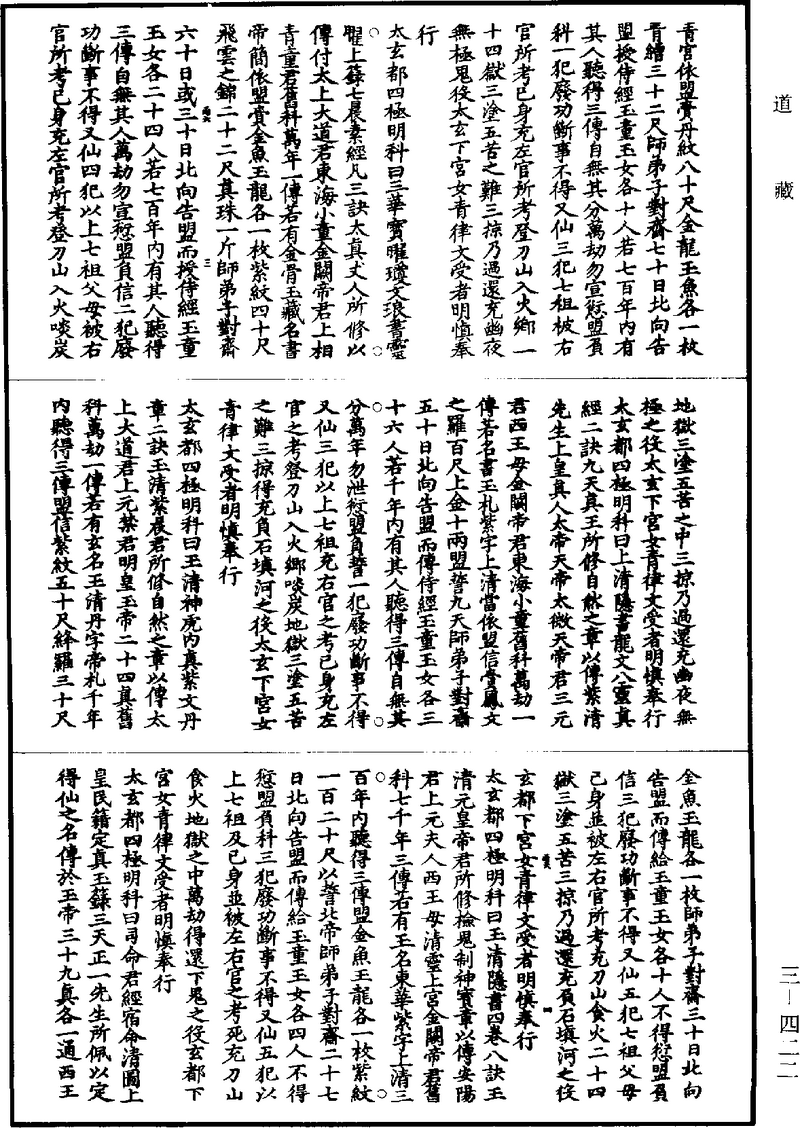 道藏
青宮依盟賫丹紋八十尺金龍玉魚各一枚
青繒三十二尺師弟子對齋七十日北向告
盟授侍經玉童玉女各十人若七百年內有
其人聽得三傳自無其分萬劫勿宣愆盟負
科一犯廢功斷事不得又仙三犯七祖被右
官所考己身充左官所考登刀山入火鄉一
十四獄三塗五苦之難三掠乃過還充幽夜
無極鬼役太玄下宮女青律文受者明慎奉
行
太玄都四極明科曰三華寶曜瓊文琅書靈
曜上籙七晨素經凡三訣太真丈人所修以
傳付太上大道君東海小童金闕帝君上相
青童君舊科萬年一傳若有金骨玉藏名書
帝簡依盟賫金魚玉龍各一枚紫紋四十尺
飛雲之錦二十二尺真珠一斤師弟子對齋
六十日或三十日北向告盟而授侍經玉童
玉女各二十四人若七百年內有其人聽得
三傳自無其人萬劫勿宣愆盟負信二犯廢
功斷事不得又仙四犯以上七祖父母被右
官所考己身充左官所考登刀山入火啖炭
地獄三塗五苦之中三掠乃過還充幽夜無
極之役太玄下宮女青律文受者明慎奉行
太玄都四極明科曰上清隱書龍文八靈真
經二訣九天真王所修自然之章以傳紫清
先生上皇真人太帝天帝太微天帝君三元
君西王母金闕帝君東海小童舊科萬劫一
傳若名書玉札紫字上清當依盟信賫鳳文
之羅百尺上金十兩盟誓九天師弟子對齋
五十日北向告盟而傳侍經玉童玉女各三
十六人若千年內有其人聽得三傳自無其
分萬年勿泄愆盟負誓一犯廢功斷事不得
又仙三犯以上七祖充右官之考己身充左
官之考登刀山入火鄉啖炭地獄三塗五苦
之難三掠得充負石填河之役太玄下宮女
青律文受者明慎奉行
太玄都四極明科曰玉清神虎內真紫文丹
章二訣玉清紫晨君所修自然之章以傳太
上大道君上元禁君明皇玉帝二十四真舊
科萬劫一傳若有玄名玉清丹字帝札千年
內聽得三傳盟信紫紋五十尺絳羅三十尺
金魚玉龍各一枚師弟子對齋三十日北向
告盟而傳給玉童玉女各十人不得愆盟負
信三犯廢功斷事不得又仙五犯七祖父母
己身並被左右官所考充刀山食火二十四
獄三塗五苦三掠乃過還充負石填河之役
玄都下宮女青律文受者明慎奉行
太玄都四極明科曰玉清隱書四卷八訣玉
清元皇帝君所修檢鬼制神寶章以傳安陽
君上元夫人西王母清靈上宮金闕帝君舊
科七千年三傳若有玉名東華紫字上清三
百年內聽得三傳盟金魚玉龍各一枚紫紋
一百二十尺以誓北帝師弟子對齋二十七
日北向告盟而傳給玉童玉女各四人不得
愆盟負科三犯廢功斷事不得又仙五犯以
上七祖及己身並被左右官之考死充刀山
食火地獄之中萬劫得還下鬼之役玄都下
宮女青律文受者明慎奉行
太玄都四極明科曰司命君經宿命清圖上
皇民籍定真玉籙三天正一先生所佩以定
得仙之名傳於玉帝三十九真各一通西王
三－四二二